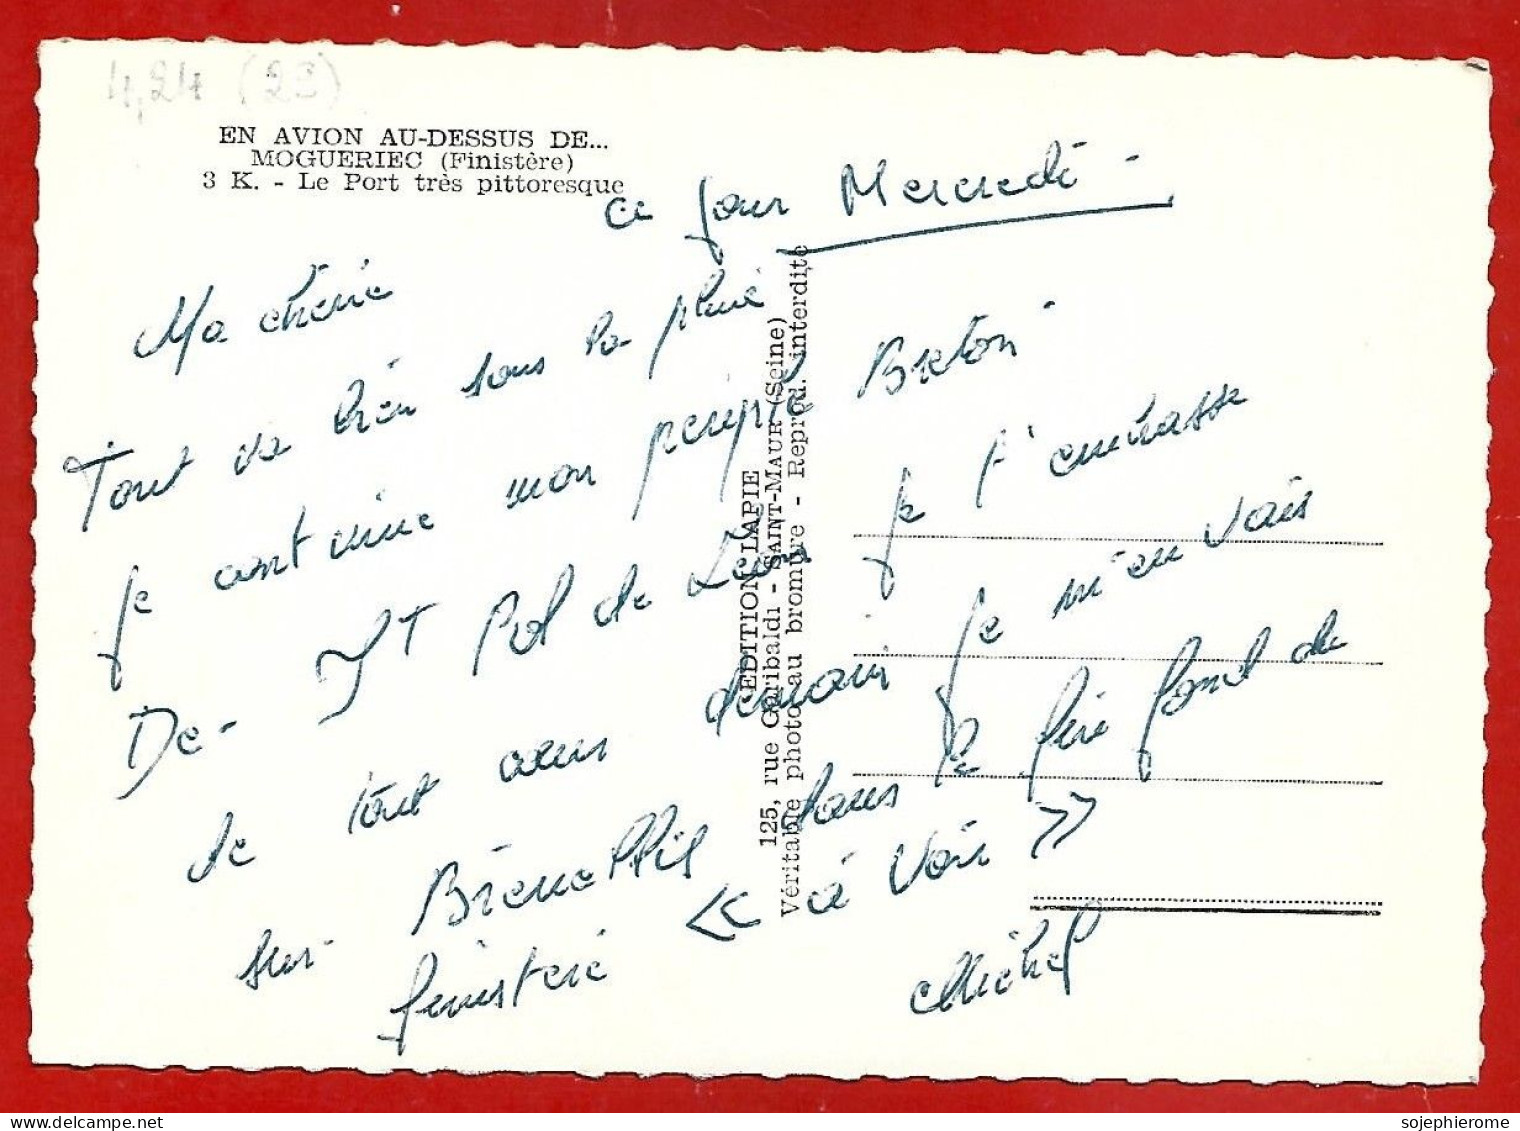 4,24 (29)
EN AVION AU-DESSUS DE...
MOGUERIEC (Finistère)
3 K. - Le Port très pittoresque
ce jour Mercredi -
Ma chérie
Tout va bien sous la pluie
je continue mon périple Breton
De - St Pol de Léon je t'embrasse
de tout cœur demain je m'en vais
sur dans le fin fond du
finistère « à voir »
Michel
EDITION LAPIE
125, rue Garibaldi - SAINT-MAUR (Seine)
Véritable photo au bromure - Reprod. interdite
sojephierome